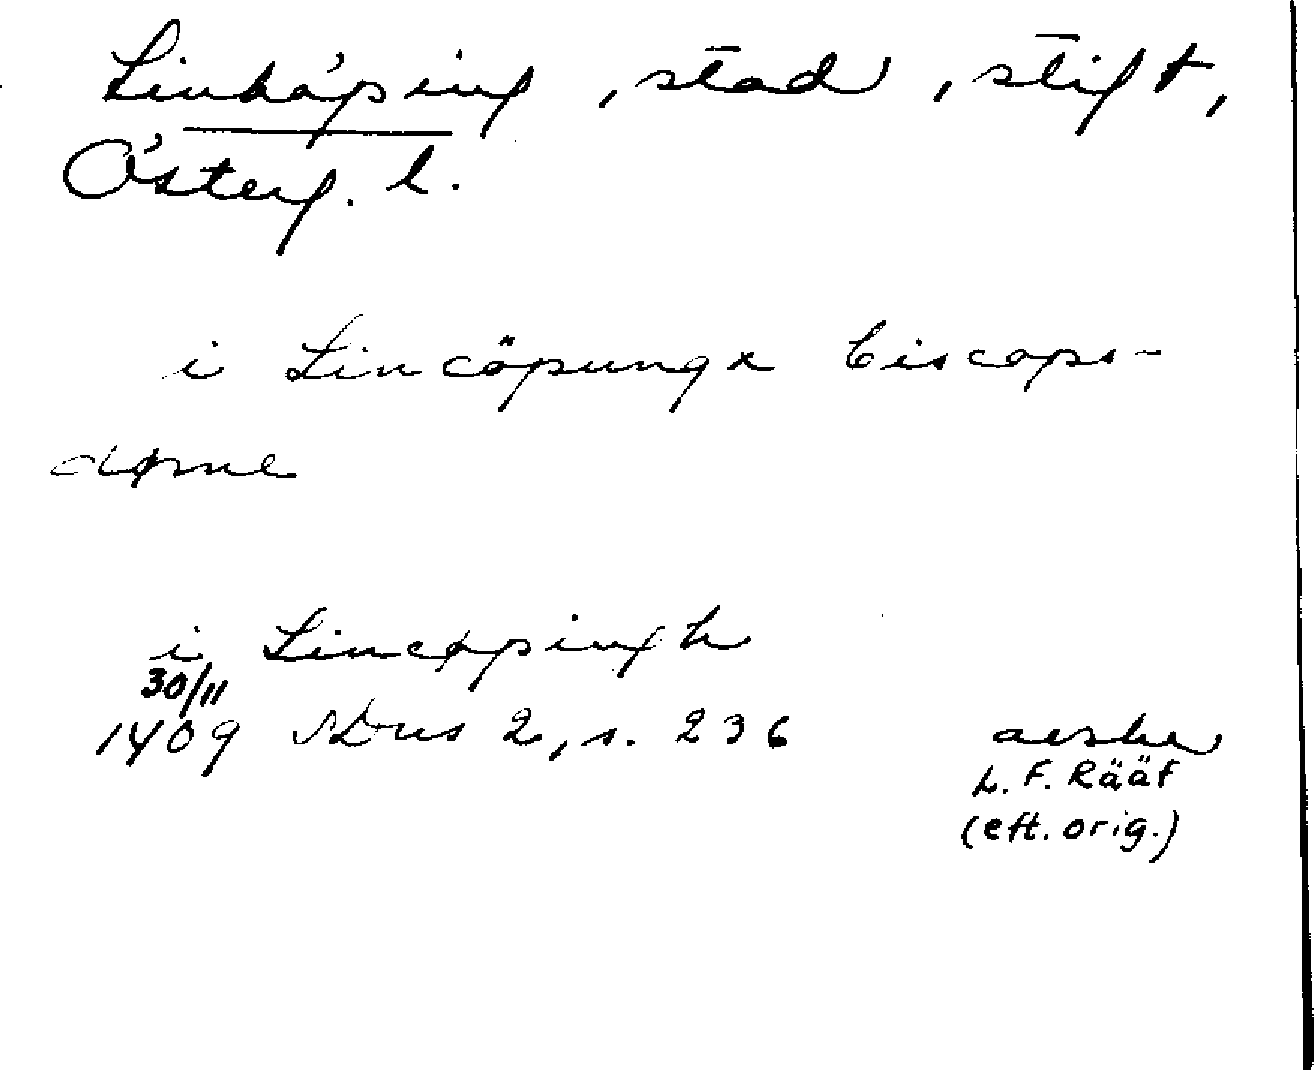 Linköping, stad, stift,
Österg. l.
i Lincöpungx biscops-
døme
i Lincøpingh
30/11
1409 SDns 2, s. 236 avskr
L. F. Rääf
(eft. orig.)